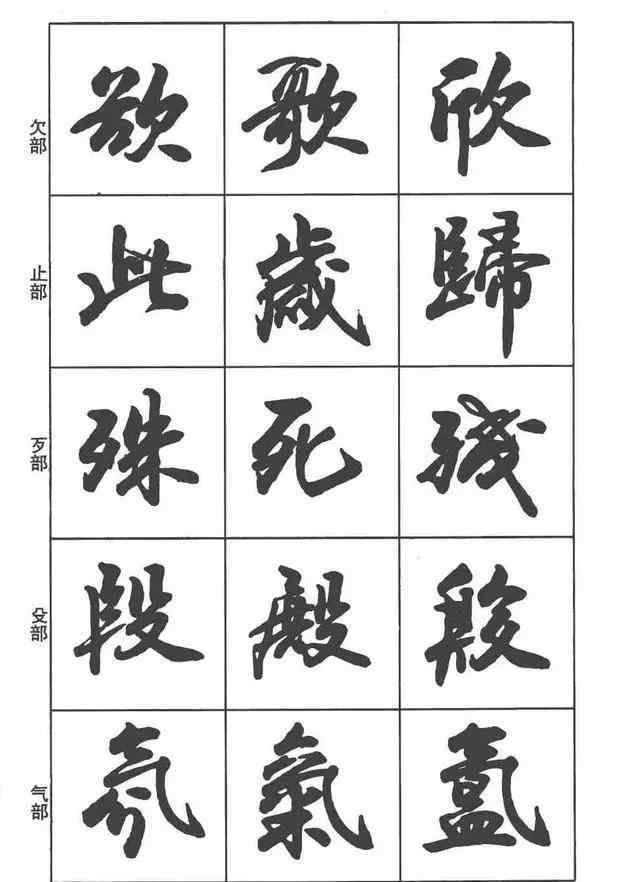 欠部
欲 歌 欣
止部
此 歲 歸
歹部
殊 死 残
殳部
段 殿
气部
氛 氣 氳